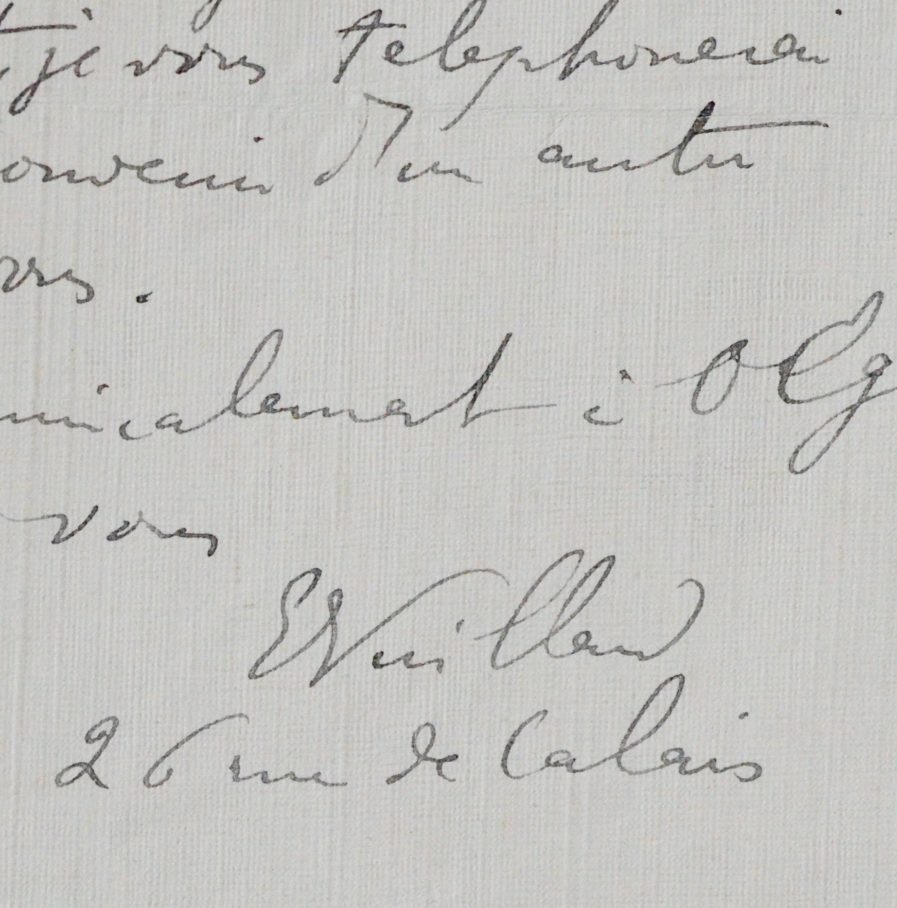 je vous telephonerai
onvenir d'un autre
amicalement à Olg
vous
EVuillard
26 rue de Calais